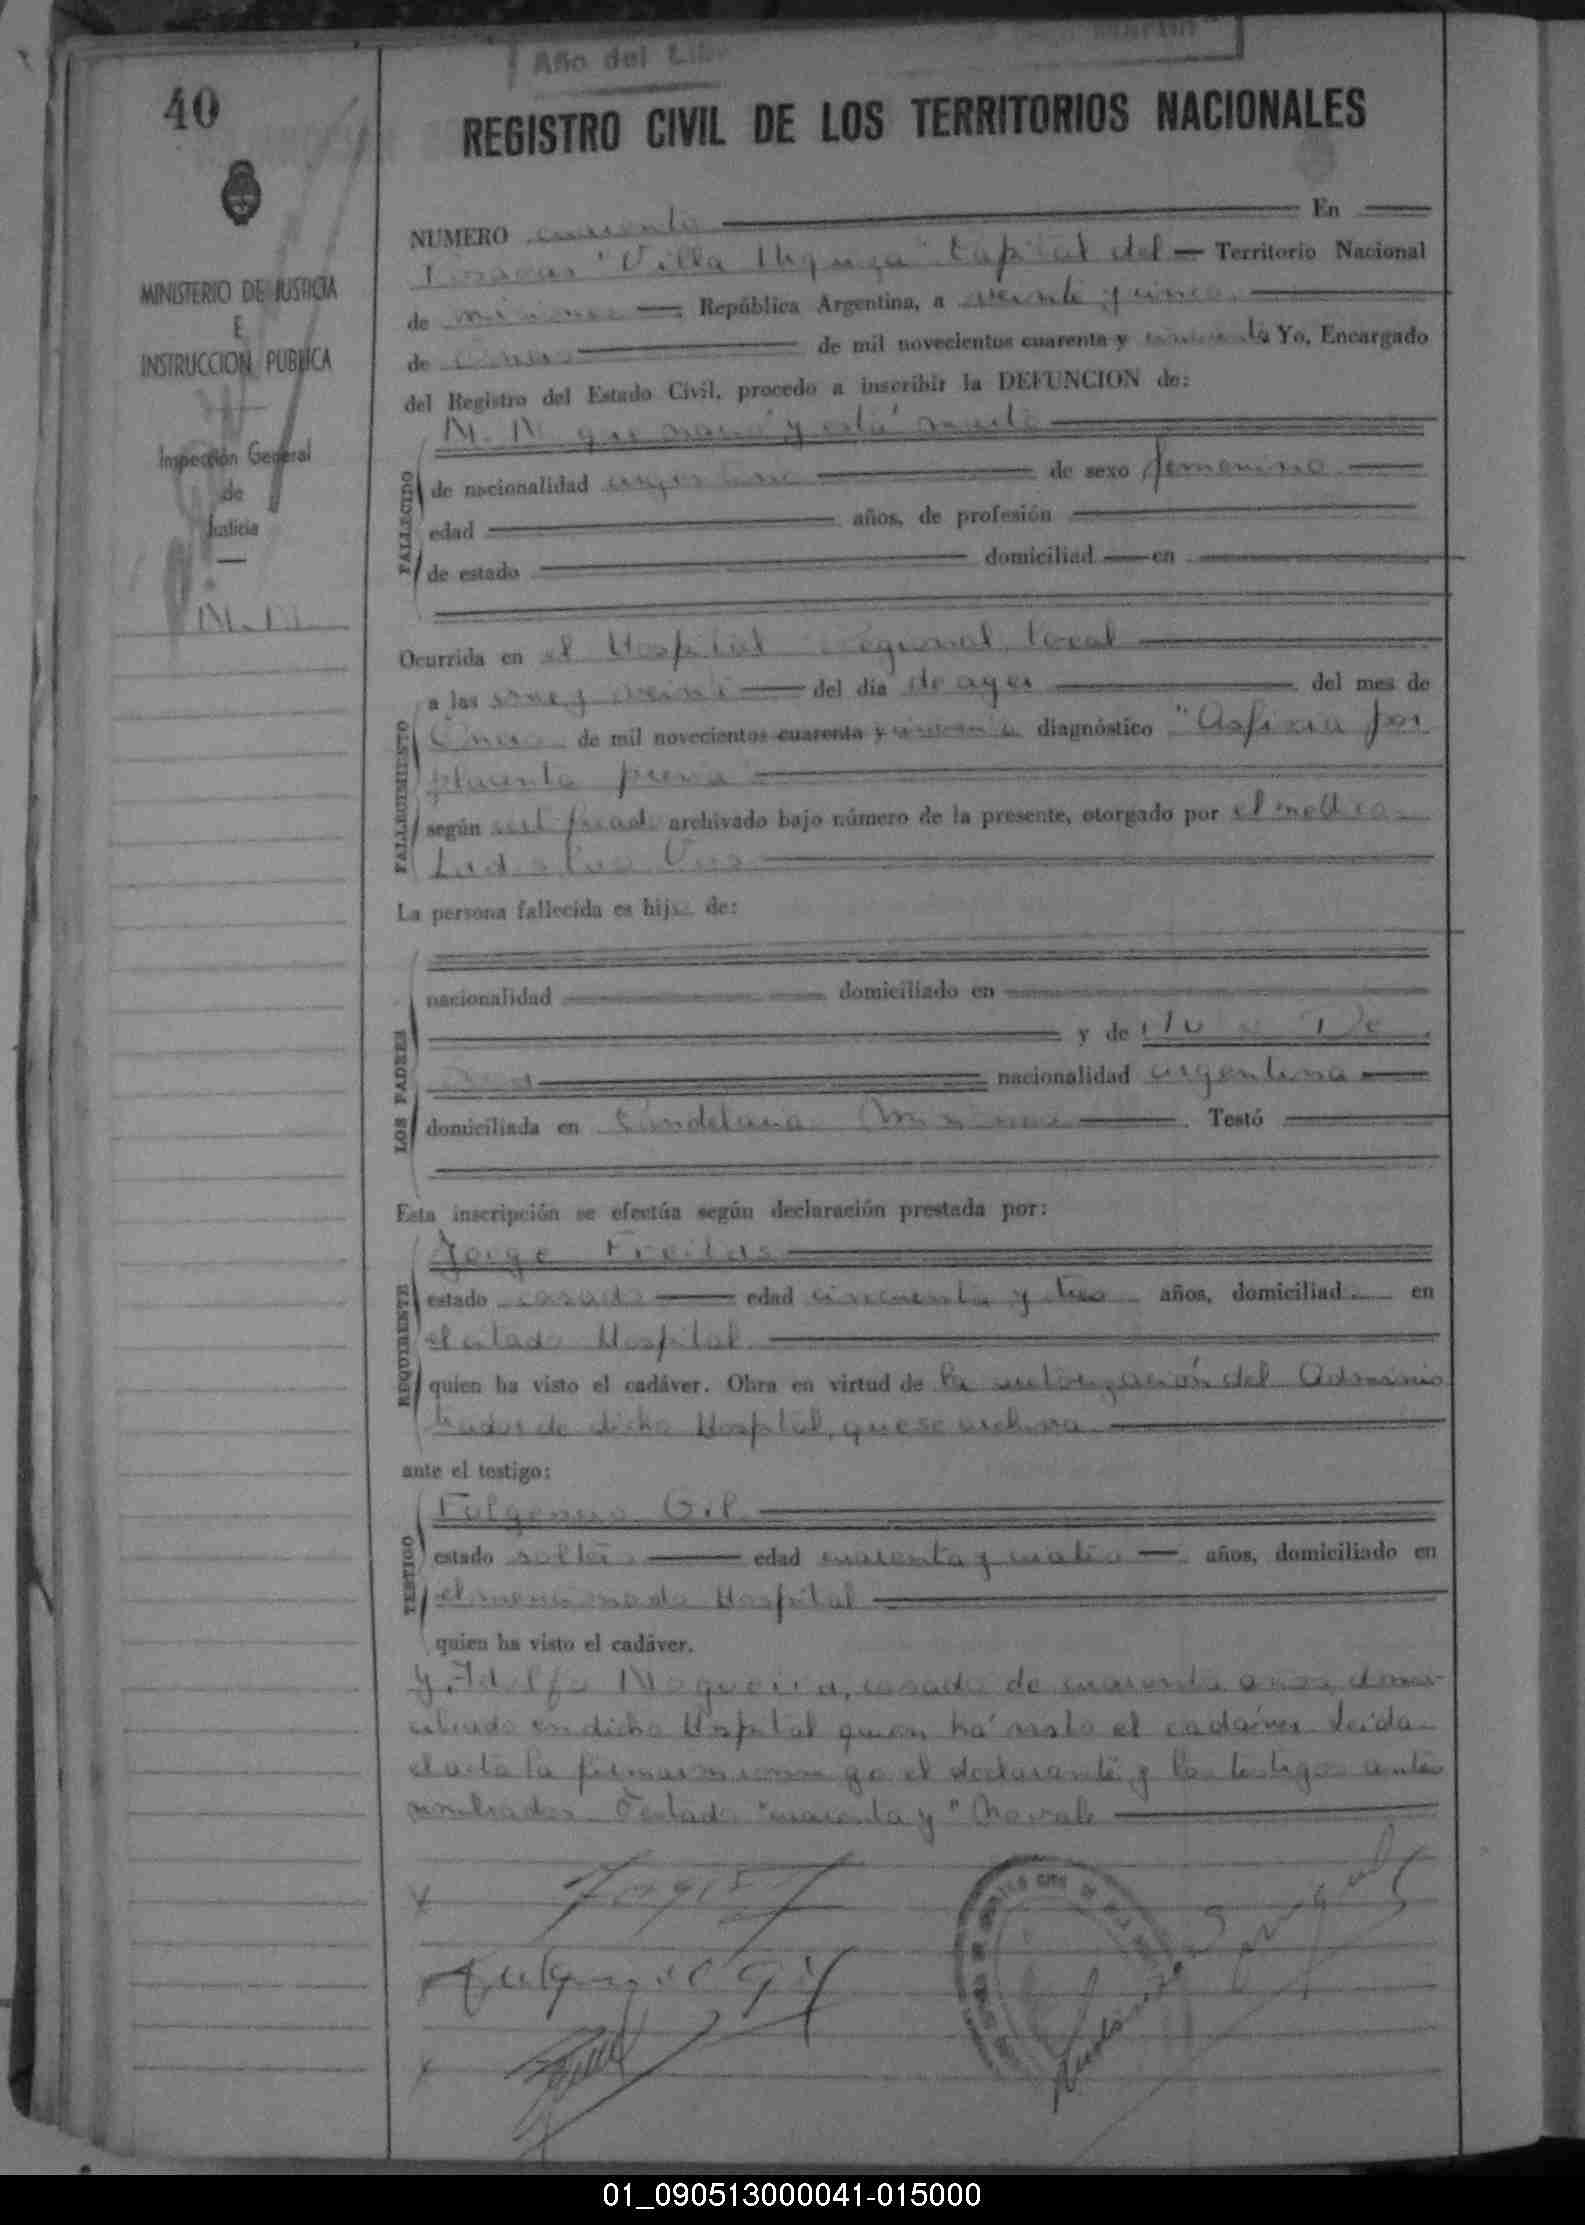 Año del Lib
40
REGISTRO CIVIL DE LOS TERRITORIOS NACIONALES
MINISTERIO DE JUSTICIA
E
INSTRUCCION PUBLICA
Inspección General
de
Justicia
N. N.
NUMERO cuarenta En
Posadas "Villa Urquiza" Capital del Territorio Nacional
de Misiones República Argentina, a veinte y cinco
de Enero de mil novecientos cuarenta y cincuenta Yo, Encargado
del Registro del Estado Civil, procedo a inscribir la DEFUNCION de:
FALLECIDO
N. N. que nació y está muerto
de nacionalidad argentina de sexo femenino
edad años, de profesión
de estado domiciliad en
Ocurrida en el Hospital Regional local
FALLECIMIENTO
a las once y veinte del día de ayer del mes de
Enero de mil novecientos cuarenta y cincuenta diagnóstico "Asfixia por
placenta previa
según certificado archivado bajo número de la presente, otorgado por el médico
La persona fallecida es hija de:
LOS PADRES
nacionalidad domiciliado en
y de
nacionalidad argentina
domiciliada en Candelaria Misiones Testó
Esta inscripción se efectúa según declaración prestada por:
REQUIRENTE
Jorge Freitas
estado casado edad cincuenta y tres años, domiciliad en
el citado Hospital
quien ha visto el cadáver. Obra en virtud de la autorización del Adminis
trador de dicho Hospital, que se archiva
ante el testigo:
TESTIGO
Fulgencio Gil
estado soltero edad cuarenta y cuatro años, domiciliado en
el mencionado Hospital
quien ha visto el cadáver.
y Adolfo Nogueira, casado de cuarenta años domi-
ciliado en dicho Hospital quien há visto el cadáver. Leída
el acta la firmaron conmigo el declarante y los testigos antes
nombrados. Testado "cuarenta y" No vale
Fulgencio Gil
01_090513000041-015000